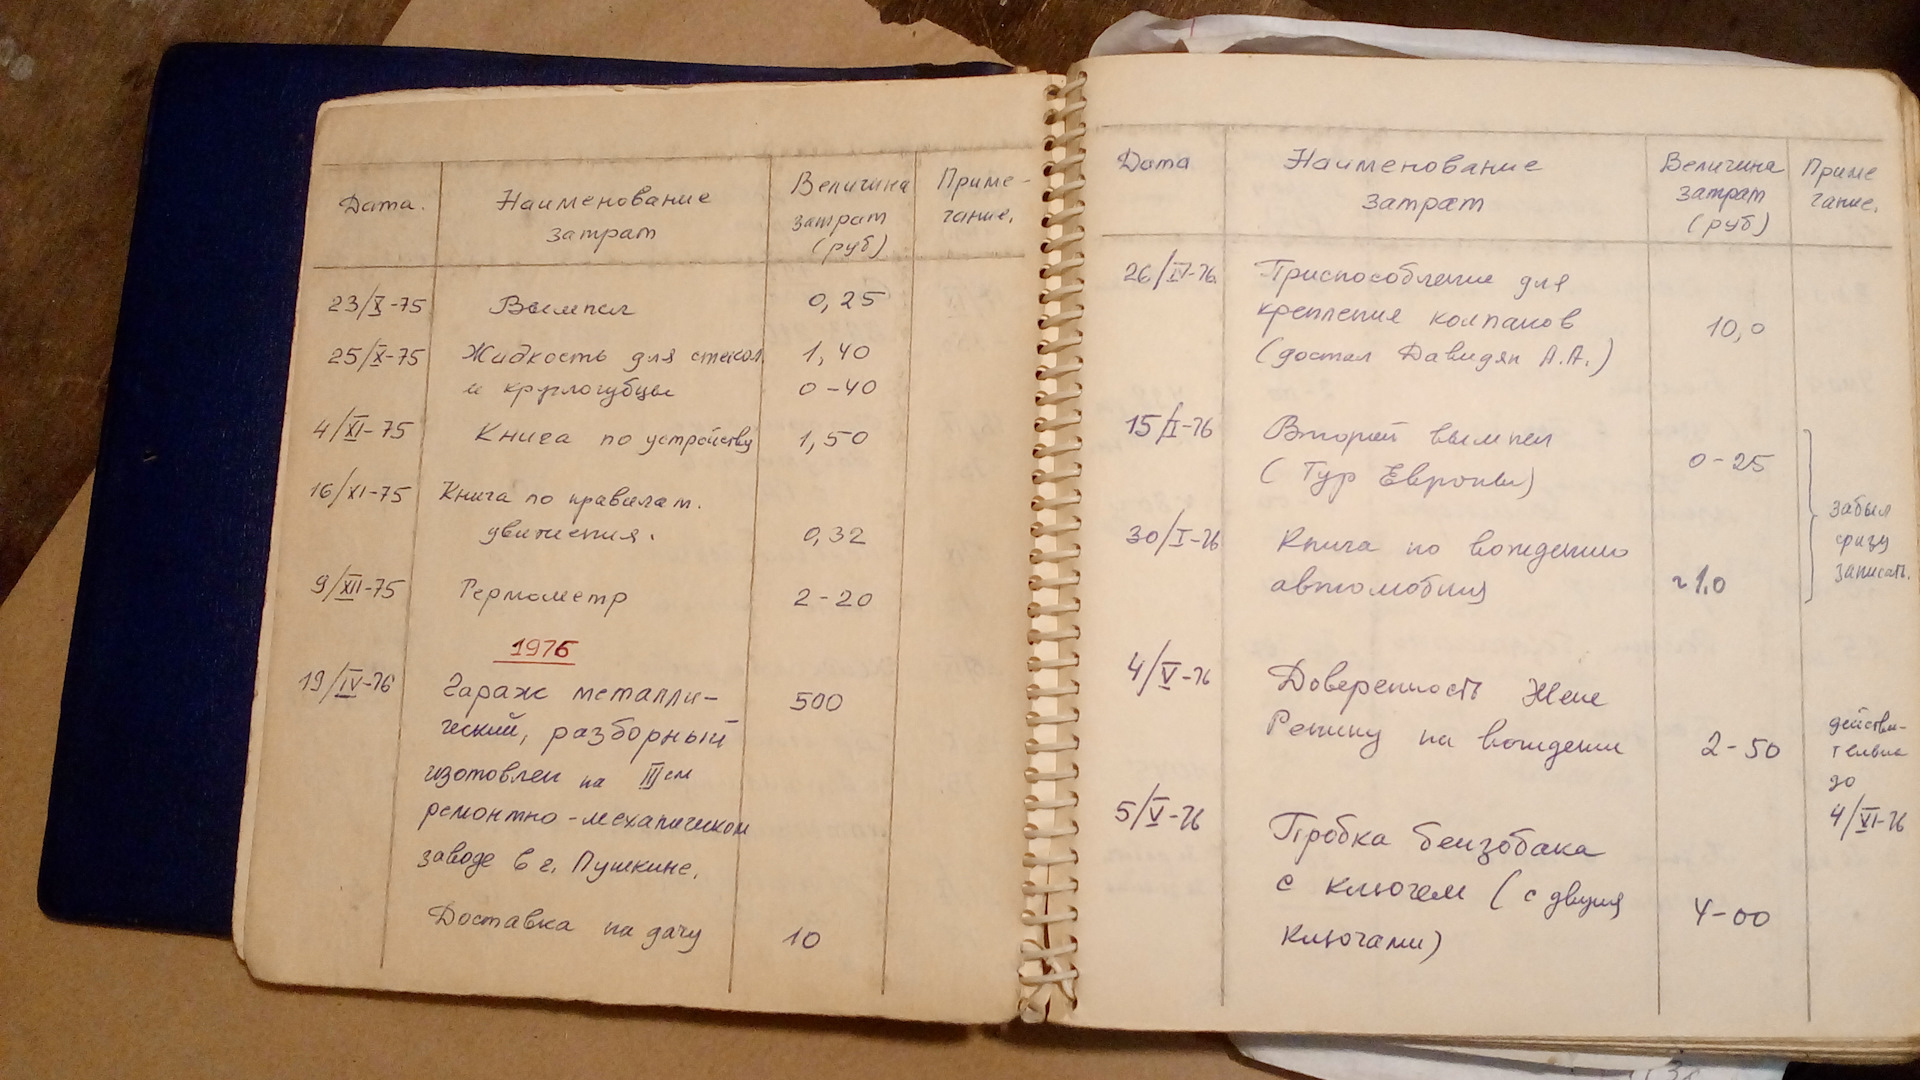 Дата.
Наименование
затрат
Величина
затрат
(руб)
Приме-
чание.
23/X-75 Вымпел 0,25
25/X-75 Жидкость для стекол 1,40
и круглогубцы 0-40
4/XI-75 Книга по устройству 1,50
16/XI-75 Книга по правилам
движения. 0,32
9/XII-75 Термометр 2-20
1976
19/IV-76 Гараж металли- 500
ческий, разборный
изготовлен на III ем
ремонтно-механическом
заводе в г. Пушкине.
Доставка на дачу 10
Дата
Наименование
затрат
Величина
затрат
(руб)
Приме
чание.
26/IV-76 Приспособление для
крепления колпаков 10,0
(достал Давидян А.А.)
15/I-76 Второй вымпел
(Тур Европы) 0-25
30/I-76 Книга по вождению
автомобиля ~1.0
забыл
сразу
записать.
4/V-76 Доверенность Жене
Репину на вождение 2-50
действи-
тельна
до
4/VI-76
5/V-76 Пробка бензобака
с ключем (с двумя 4-00
ключами)